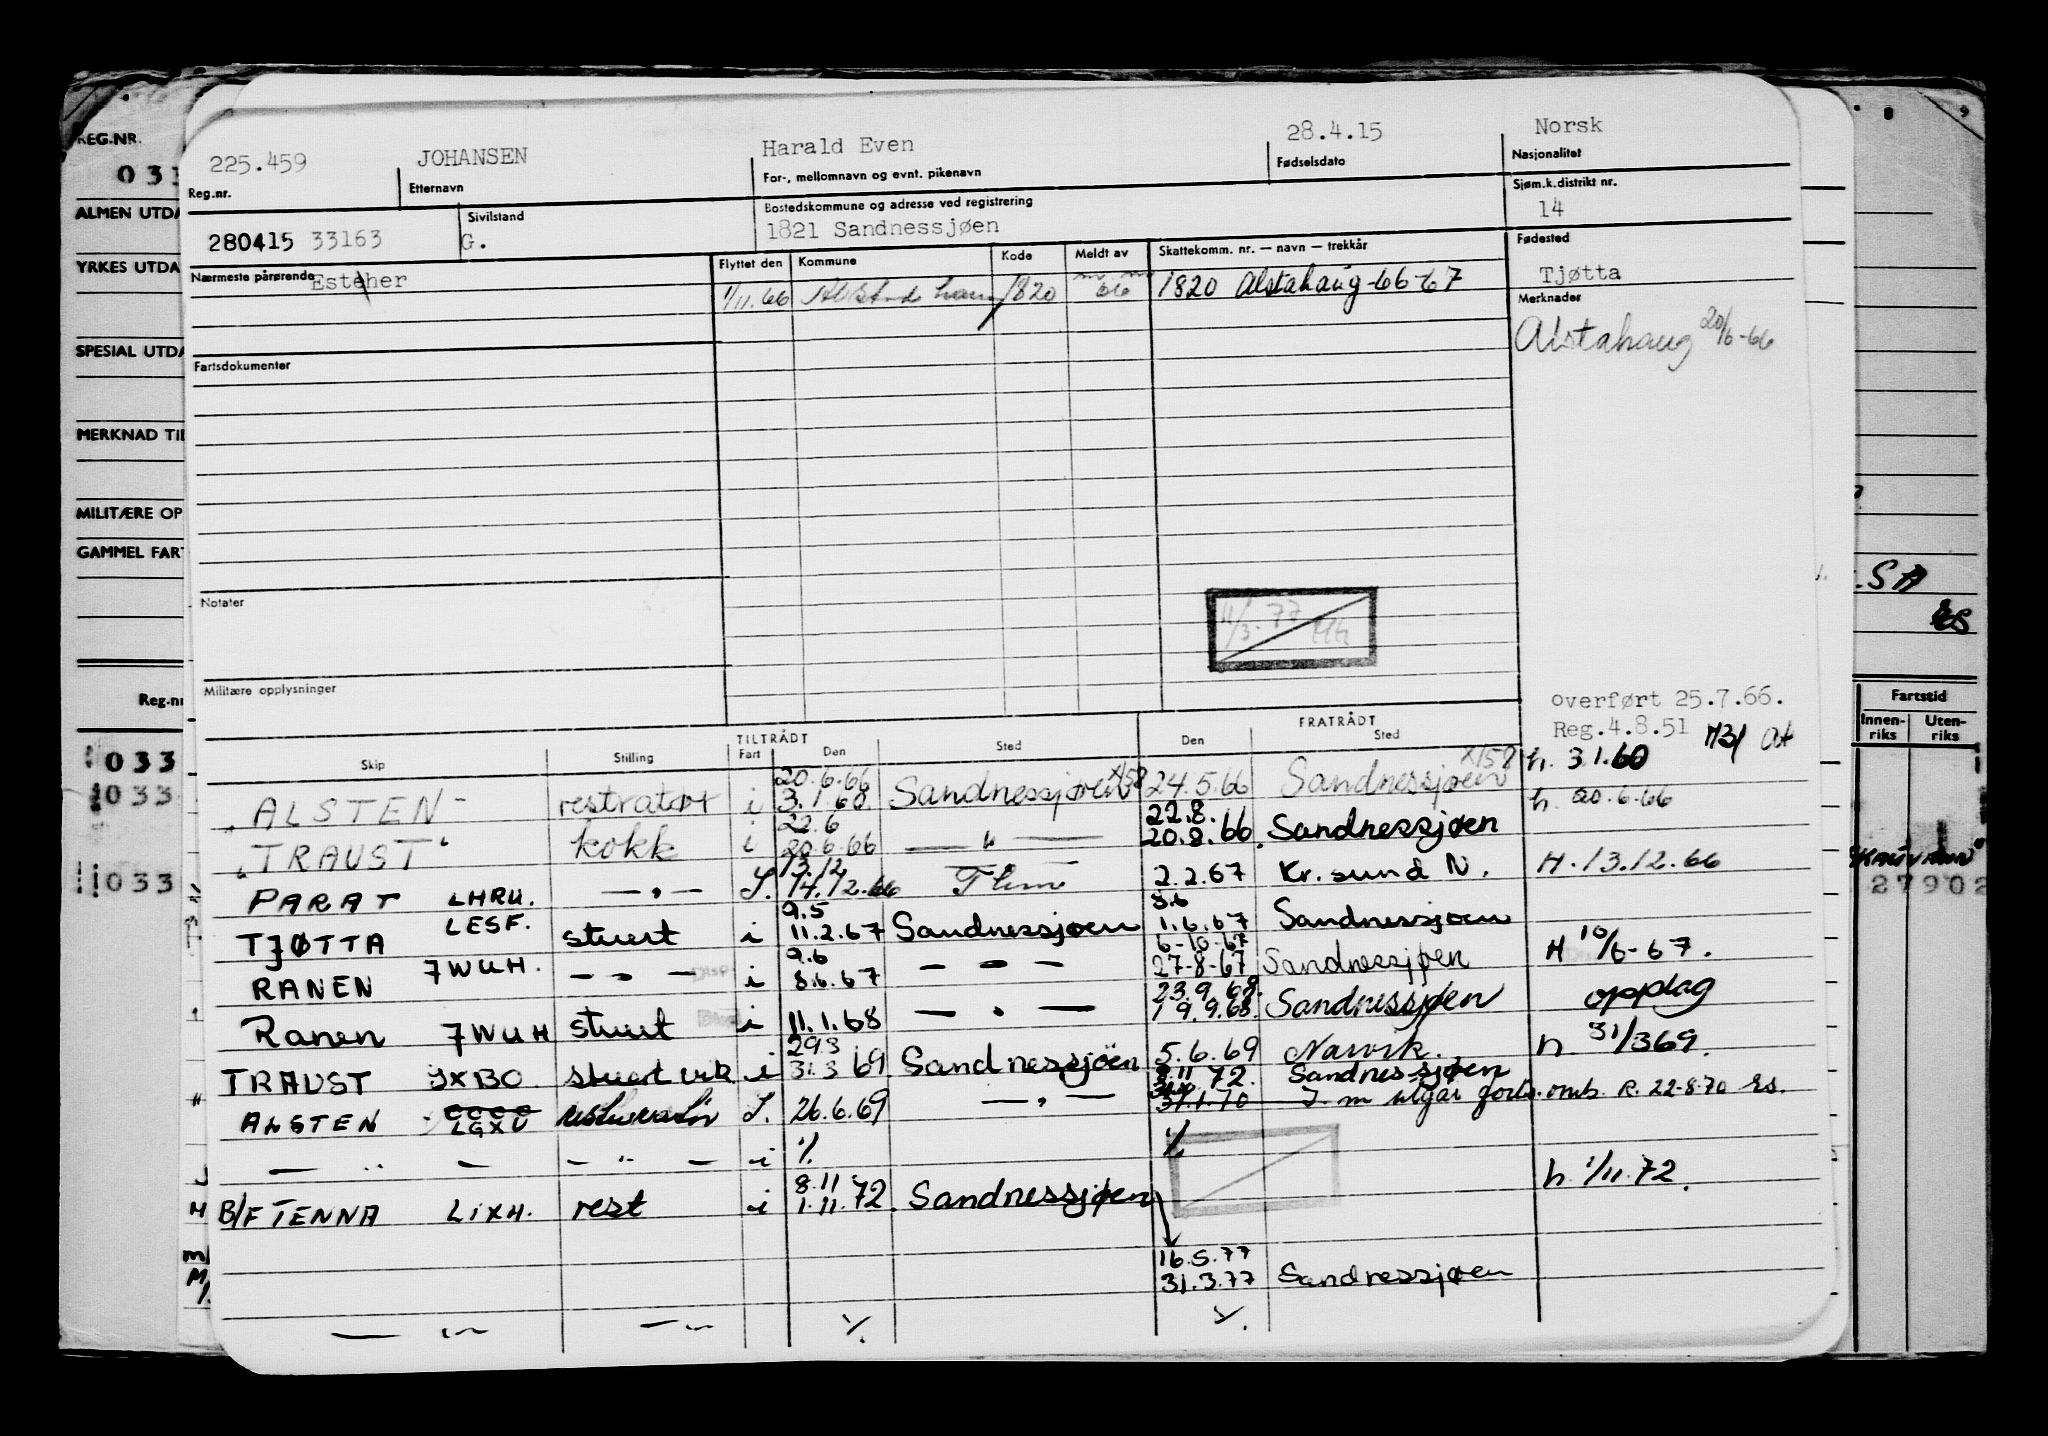 REG.NR.
033
ALMEN UTDA
YRKES UTDA
SPESIAL UTDA
MERKNAD TIL
MILITÆRE OP
GAMMEL FART
Reg.nr
033
033
033
225.459 JOHANSEN Harald Even 28.4.15 Norsk
Reg.nr. Etternavn For-, mellomnavn og evnt. pikenavn Fødselsdato Nasjonalitet
280415 33163 Sivilstand G. Bostedskommune og adresse ved registrering 1821 Sandnessjøen Sjøm.k.distrikt nr. 14
Nærmeste pårørende Esteher Flyttet den Kommune Kode Meldt av Skattekomm. nr. — navn — trekkår Fødested Tjøtta
1/11.66 1820 66 1820 Alstahaug-66-67
Merknader
Alstahaug 20/6-66
Fartsdokumenter
Notater
11/3.77
Militære opplysninger
overført 25.7.66.
Reg.4.8.51
TILTRÅDT FRATRÅDT
Skip Stilling Fart Den Sted Den Sted
h. 3.1.60
"ALSTEN" restratør i 20.6.66 3.1.60 Sandnessjøen x158 24.5.66 Sandnessjøen x158 h. 20.6.66
"TRAUST" kokk i 22.6 20.6.66 — " — 22.8. 20.8.66. Sandnessjøen
PARAT LHRU. — " — 13.12 14.12.66 2.2.67 Kr.sund N. H. 13.12.66
TJØTTA LESF. stuert i 9.5 11.2.67 Sandnessjøen 8.6 1.6.67 Sandnessjøen
RANEN JWUH. — " — i 9.6 8.6.67 — " — 6-10-67 27-8-67 Sandnessjøen H 10/6-67.
Ranen JWUH stuert i 11.1.68 — " — 23.9.68. 19.9.68. Sandnessjøen opplag
TRAUST stuert i 29.3 31.3 69 Sandnessjöen 5.6.69 Narvik. h. 31/369.
ALSTEN LGXU 26.6.69 — " — 72. Sandnessjøen
31.1.70 R. 22-8-70
— " — — " — i 1/. 1/.
B/F TENNA LIXH. rest i 8.11 1.11.72. Sandnessjøen h. 1/11.72.
16.5.77
31.3.77 Sandnessjøen
— " — — " — 1/. 1/.
.SA
Fartstid
Innen-riks Uten-riks
27902